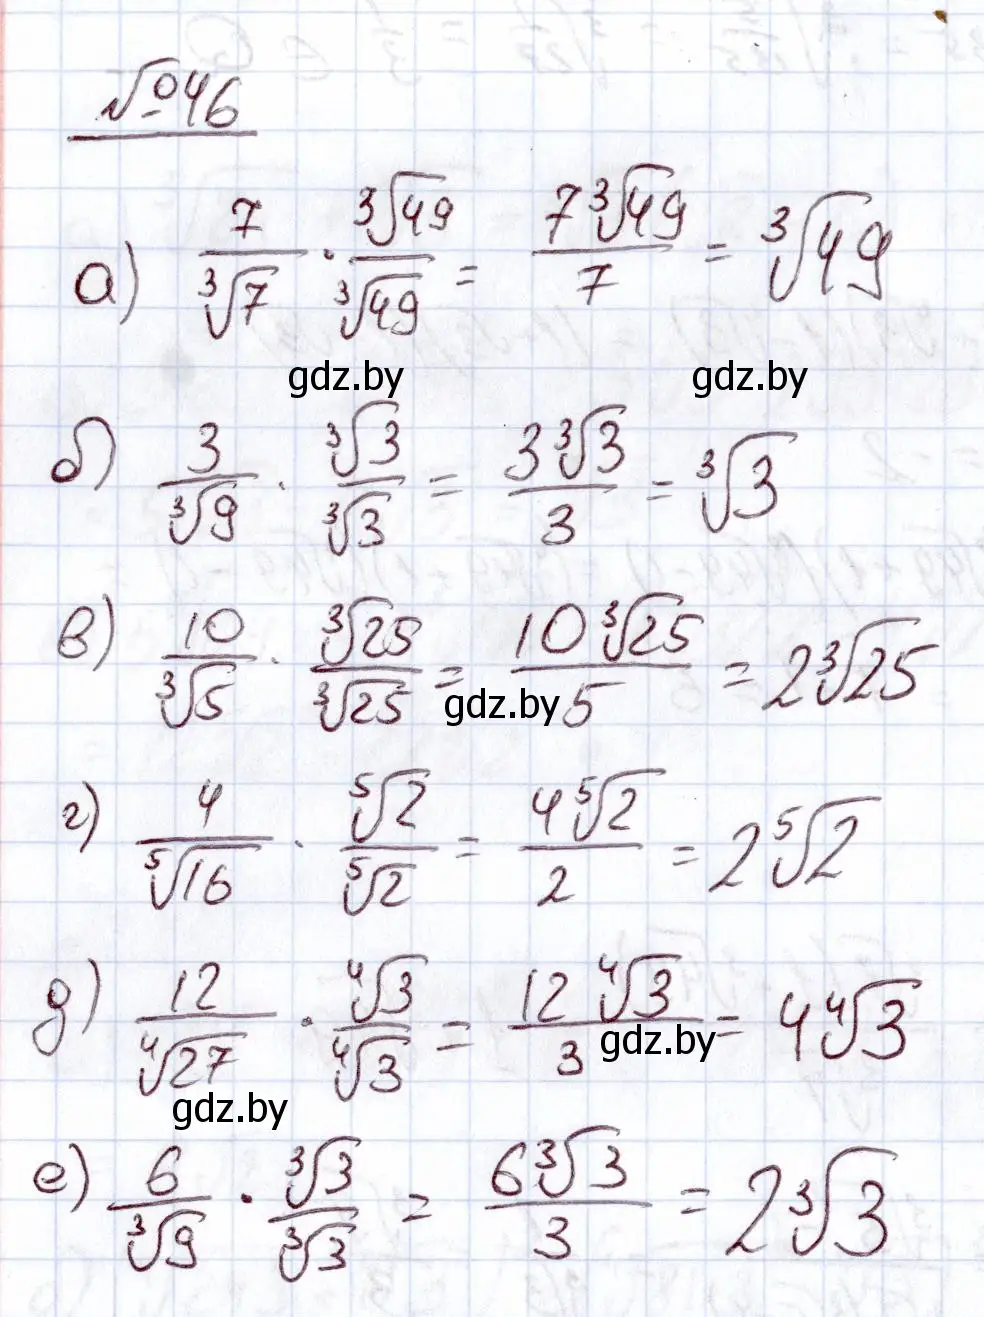 №46
а) 7/∛7 · ∛49/∛49 = 7∛49/7 = ∛49
gdz.by gdz.by
б) 3/∛9 · ∛3/∛3 = 3∛3/3 = ∛3
в) 10/∛5 · ∛25/∛25 = 10∛25/5 = 2∛25
gdz.by
г) 4/⁵√16 · ⁵√2/⁵√2 = 4⁵√2/2 = 2⁵√2
д) 12/⁴√27 · ⁴√3/⁴√3 = 12⁴√3/3 = 4⁴√3
gdz.by
gdz.by
е) 6/∛9 · ∛3/∛3 = 6∛3/3 = 2∛3